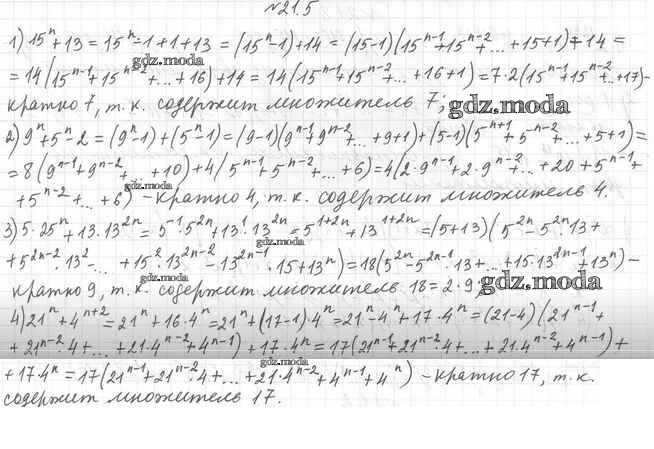 №21.5
1) 15^n+13 = 15^n-1+1+13 = (15^n-1)+14 = (15-1)(15^{n-1}+15^{n-2}+...+15+1)+14 =
gdz.moda
= 14(15^{n-1}+15^{n-2}+...+16)+14 = 14(15^{n-1}+15^{n-2}+...+16+1) = 7·2(15^{n-1}+15^{n-2}+...+17)-
кратно 7, т.к. содержит множитель 7;
gdz.moda
2) 9^n+5^n-2 = (9^n-1)+(5^n-1) = (9-1)(9^{n-1}+9^{n-2}+...+9+1)+(5-1)(5^{n+1}+5^{n-2}+...+5+1) =
= 8(9^{n-1}+9^{n-2}+...+10)+4(5^{n-1}+5^{n-2}+...+6) = 4(2·9^{n-1}+2·9^{n-2}+...+20+5^{n-1}+
gdz.moda
+5^{n-2}+...+6) - кратно 4, т.к. содержит множитель 4.
3) 5·25^n+13·13^{2n} = 5^1·5^{2n}+13^1·13^{2n} = 5^{1+2n}+13^{1+2n} = (5+13)(5^{2n}-5^{2n}·13+
gdz.moda
+5^{2n-2}·13^2-...+15^2·13^{2n-2}-13^{2n-1}·15+13^n) = 18(5^{2n}-5^{2n-1}·13+...+15·13^{2n-1}+13^n) -
gdz.moda
кратно 9, т.к. содержит множитель 18=2·9;
gdz.moda
4) 21^n+4^{n+2} = 21^n+16·4^n = 21^n+(17-1)·4^n = 21^n-4^n+17·4^n = (21-4)(21^{n-1}+
+21^{n-2}·4+...+21·4^{n-2}+4^{n-1})+17·4^n = 17(21^{n-1}+21^{n-2}·4+...+21·4^{n-2}+4^{n-1})+
gdz.moda
+17·4^n = 17(21^{n-1}+21^{n-2}·4+...+21·4^{n-2}+4^{n-1}+4^n) - кратно 17, т.к.
содержит множитель 17.